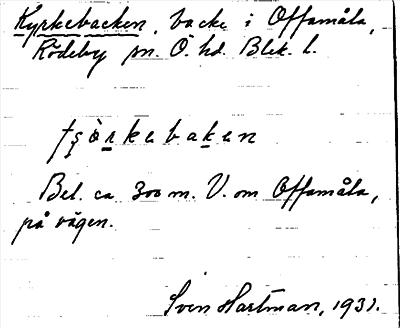 Kyrkebacken, backe i Offamåla,
Rödeby sn. Ö. hd. Blek. l.
tʂò̤rkebaken
Bel. ca 300 m. V. om Offamåla,
på vägen.
Sven Hartman, 1931.